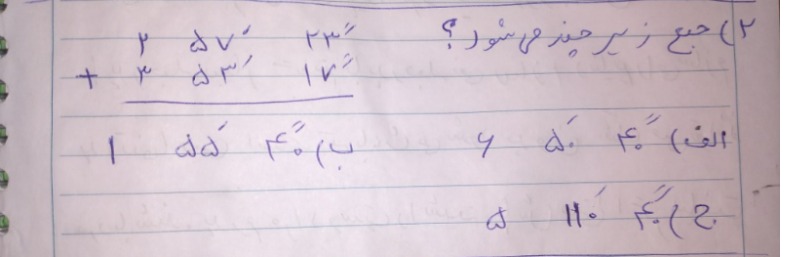 ۲) جمع زیر چند می‌شود؟
۲ ۵۷′ ۲۳″
+ ۳ ۵۳′ ۱۷″
الف) ۴۰″ ۵۰′ ۶
ب) ۴۰″ ۵۵′ ۱
ج) ۴۰″ ۱۱۰′ ۵